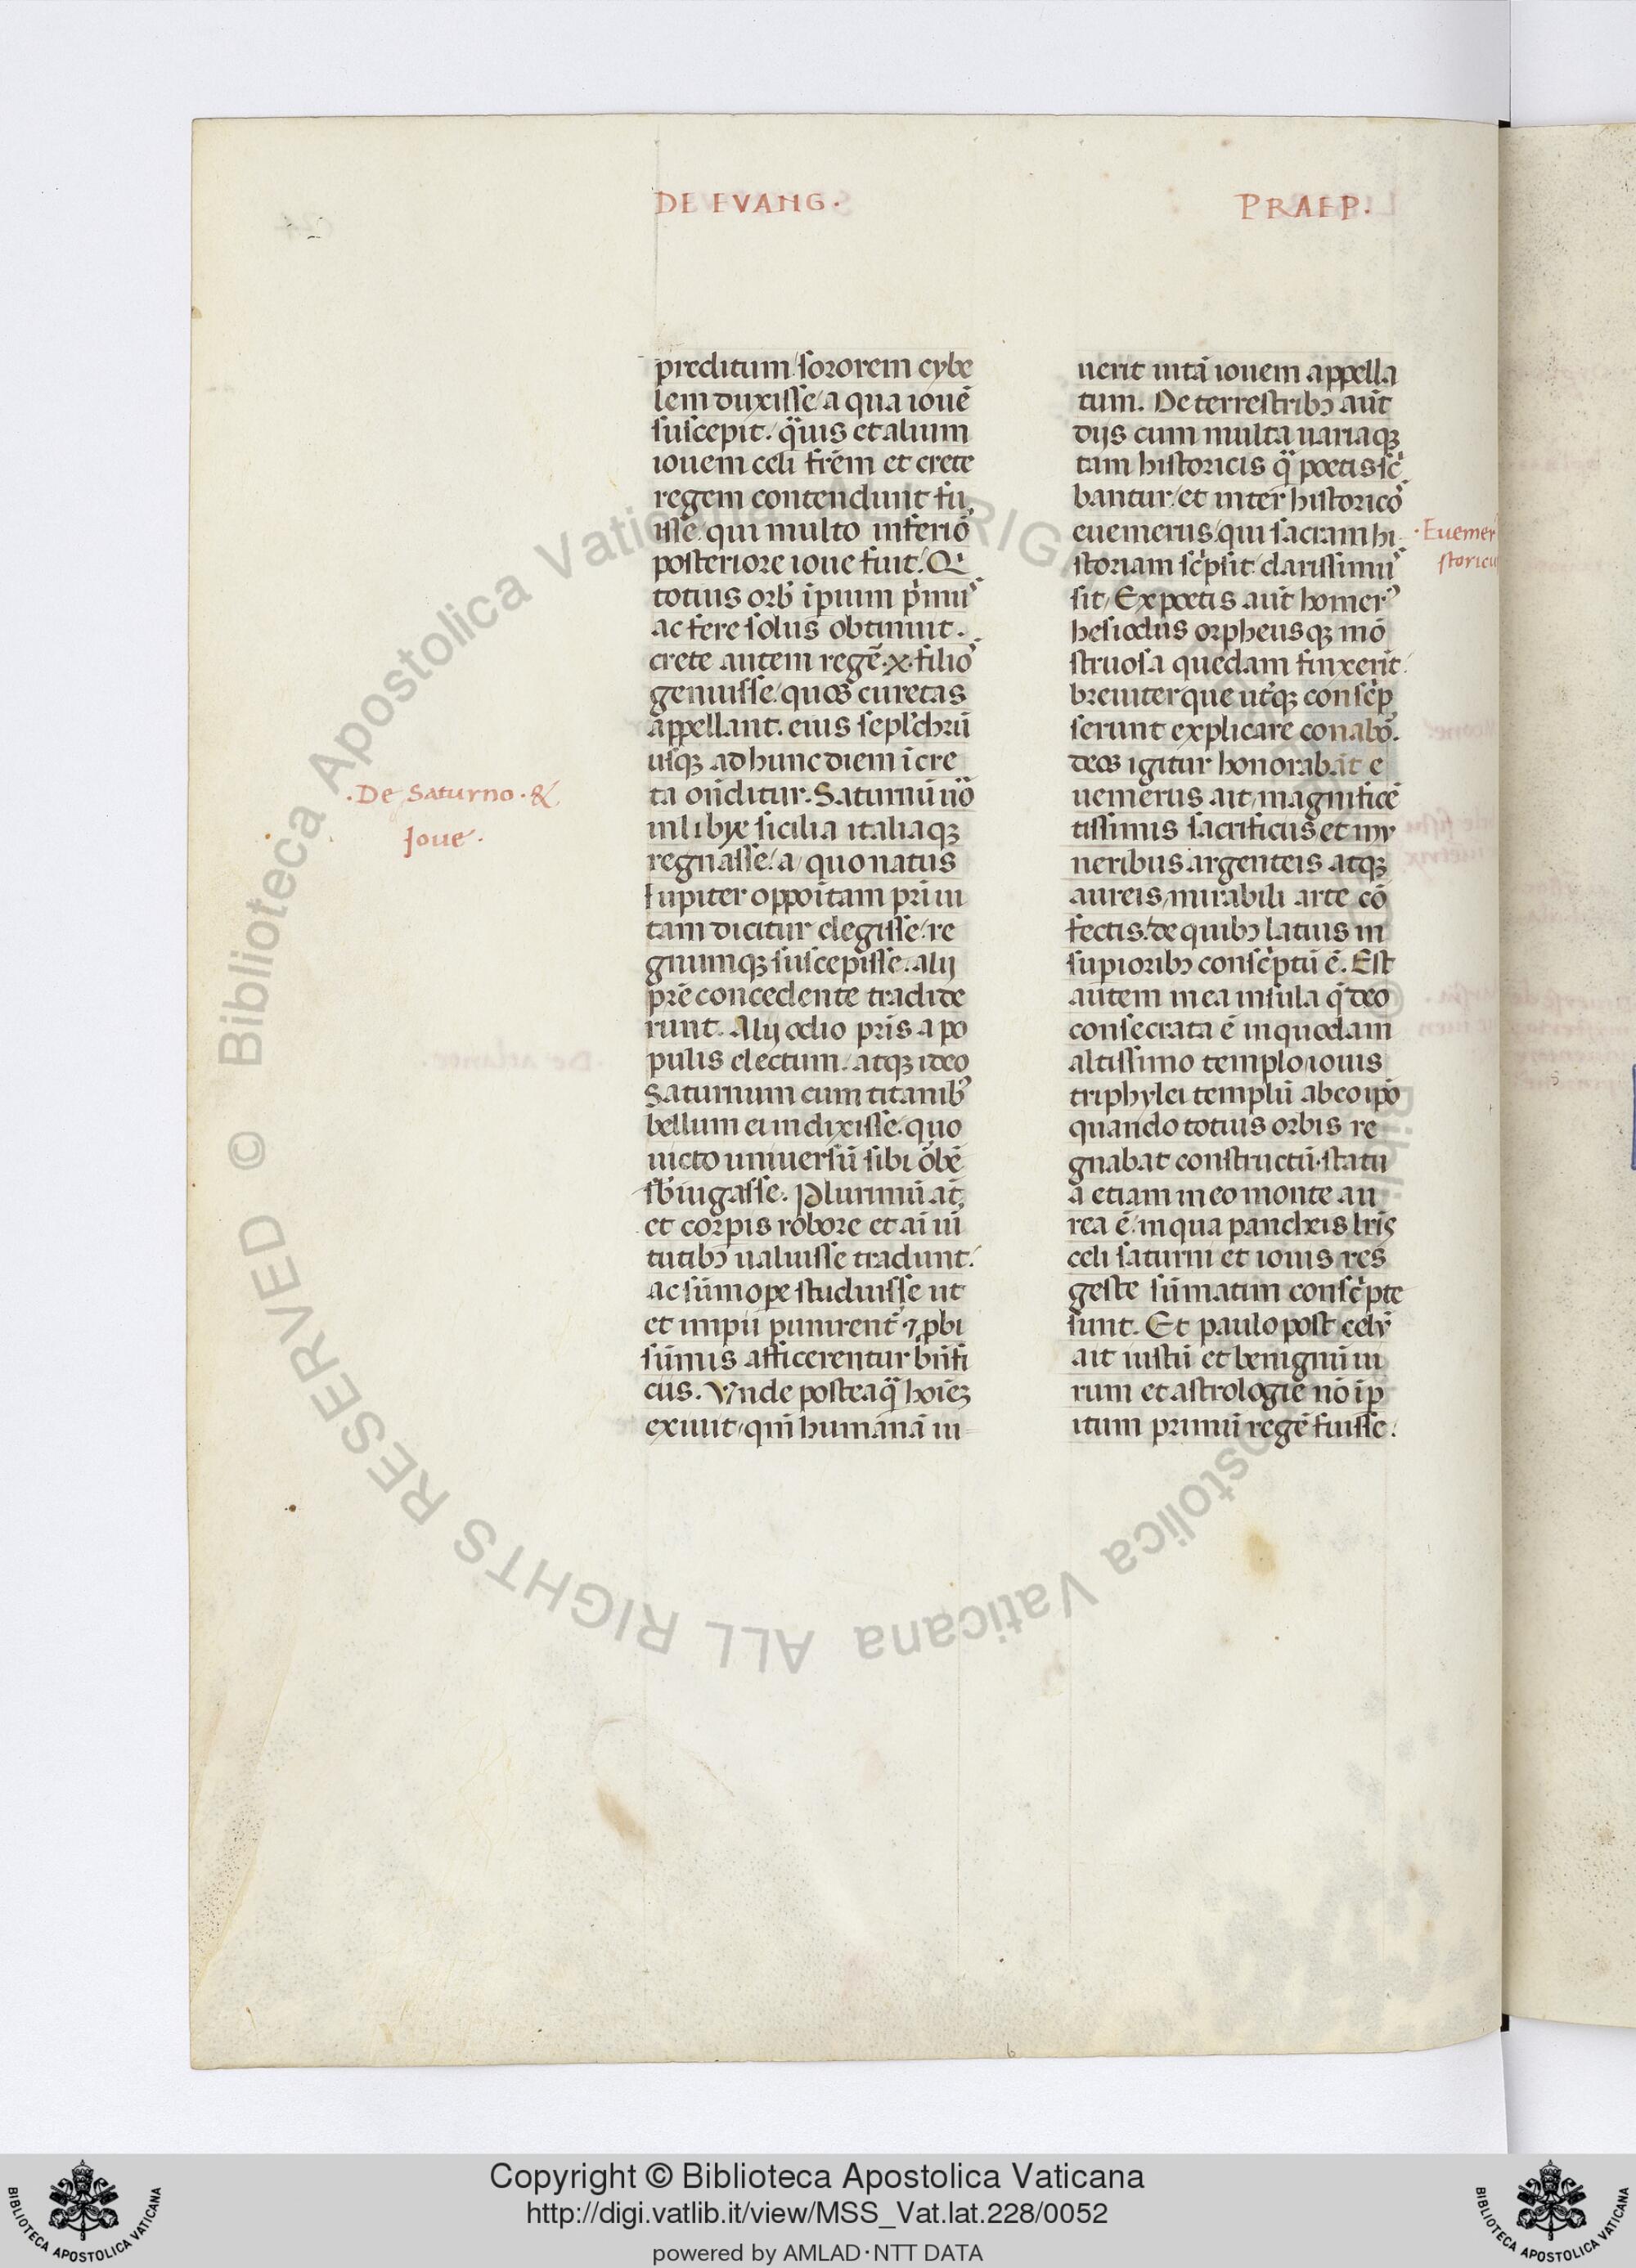 DE EVANG.
PRAEP.
preditum sororem cybe
lem duxisse a qua iouē
suscepit. q̄uis et alium
iouem celi frēm et crete
regem contendunt fu
isse qui multo inferio
posteriore ioue fuit. Q
totius orb ipium p̄mu
ac fere solus obtinuit.
crete autem regē .x. filio
genuisse quos curetas
appellant. eius seplchrū
usq; ad hunc diem i cre
ta oñditur. Saturnū uo
in libye sicilia italiaq;
regnasse. a quo natus
Iupiter oppoitam pri ui
tam dicitur elegisse re
gnumq; suscepisse. alij
prē concedente tradide
runt. Alij odio pris a po
pulis electum. atq; ideo
Saturnum cum titanib
bellum ei indixisse. quo
uicto uniuersū sibi obē
sbiugasse. Plurimū at
et corpis robore et ai ui
tutibꝫ ualuisse tradunt.
ac sūmope studuisse ut
et impii punirent ⁊ pbi
sūmis afficerentur bñfi
ciis. Unde posteaq̄ hoiēꝫ
exiuit qm̄ humānā ui
.De Saturno. &
Ioue.
uerit uitā iouem appella
tum. De terrestribꝫ aūt
dijs cum multa uariaq;
tam historicis q̄ poetis sc
bantur et inter historico
euemerus qui sacram hi
storiam sc̄psit clarissimu
sit. Ex poetis aūt homer
hesiodus orpheusq; mō
struosa quedam finxerit
breuiter que utq; consc̄p
serunt explicare conabo.
deos igitur honorabāt e
uemerus ait magnificē
tissimis sacrificiis et mu
neribus argenteis atq;
aureis mirabili arte cō
fectis. de quibꝫ latius in
supioribꝫ consc̄ptū ē. Est
autem in ea insula q̄ deo
consecrata ē in quodam
altissimo templo iouis
triphylei templū ab eo ipo
quando totius orbis re
gnabat constructū. statu
a etiam in eo monte au
rea ē in qua pancheis lris
celi saturni et iouis res
geste sūmatim consc̄pte
sunt. Et paulo post celū
ait iustū et benignū ui
rum et astrologie nō ip
itum primū regē fuisse.
.Euemer
storicu
© Biblioteca Apostolica Vaticana ALL RIGHTS RESERVED
Copyright © Biblioteca Apostolica Vaticana
http://digi.vatlib.it/view/MSS_Vat.lat.228/0052
powered by AMLAD·NTT DATA
BIBLIOTECA APOSTOLICA VATICANA
BIBLIOTECA APOSTOLICA VATICANA